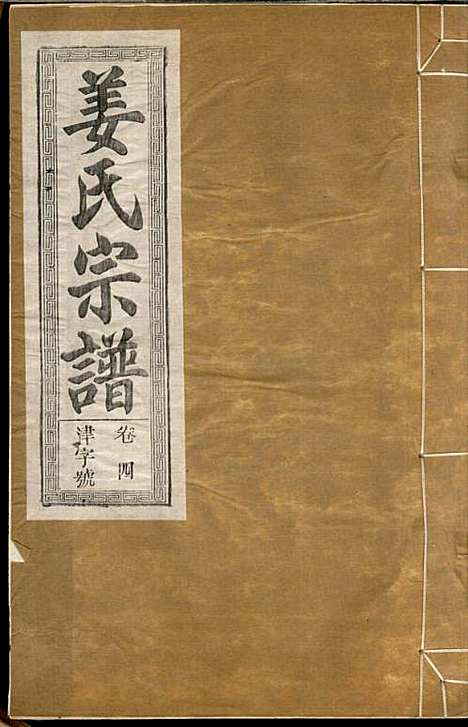 姜氏宗譜
卷四
津字號